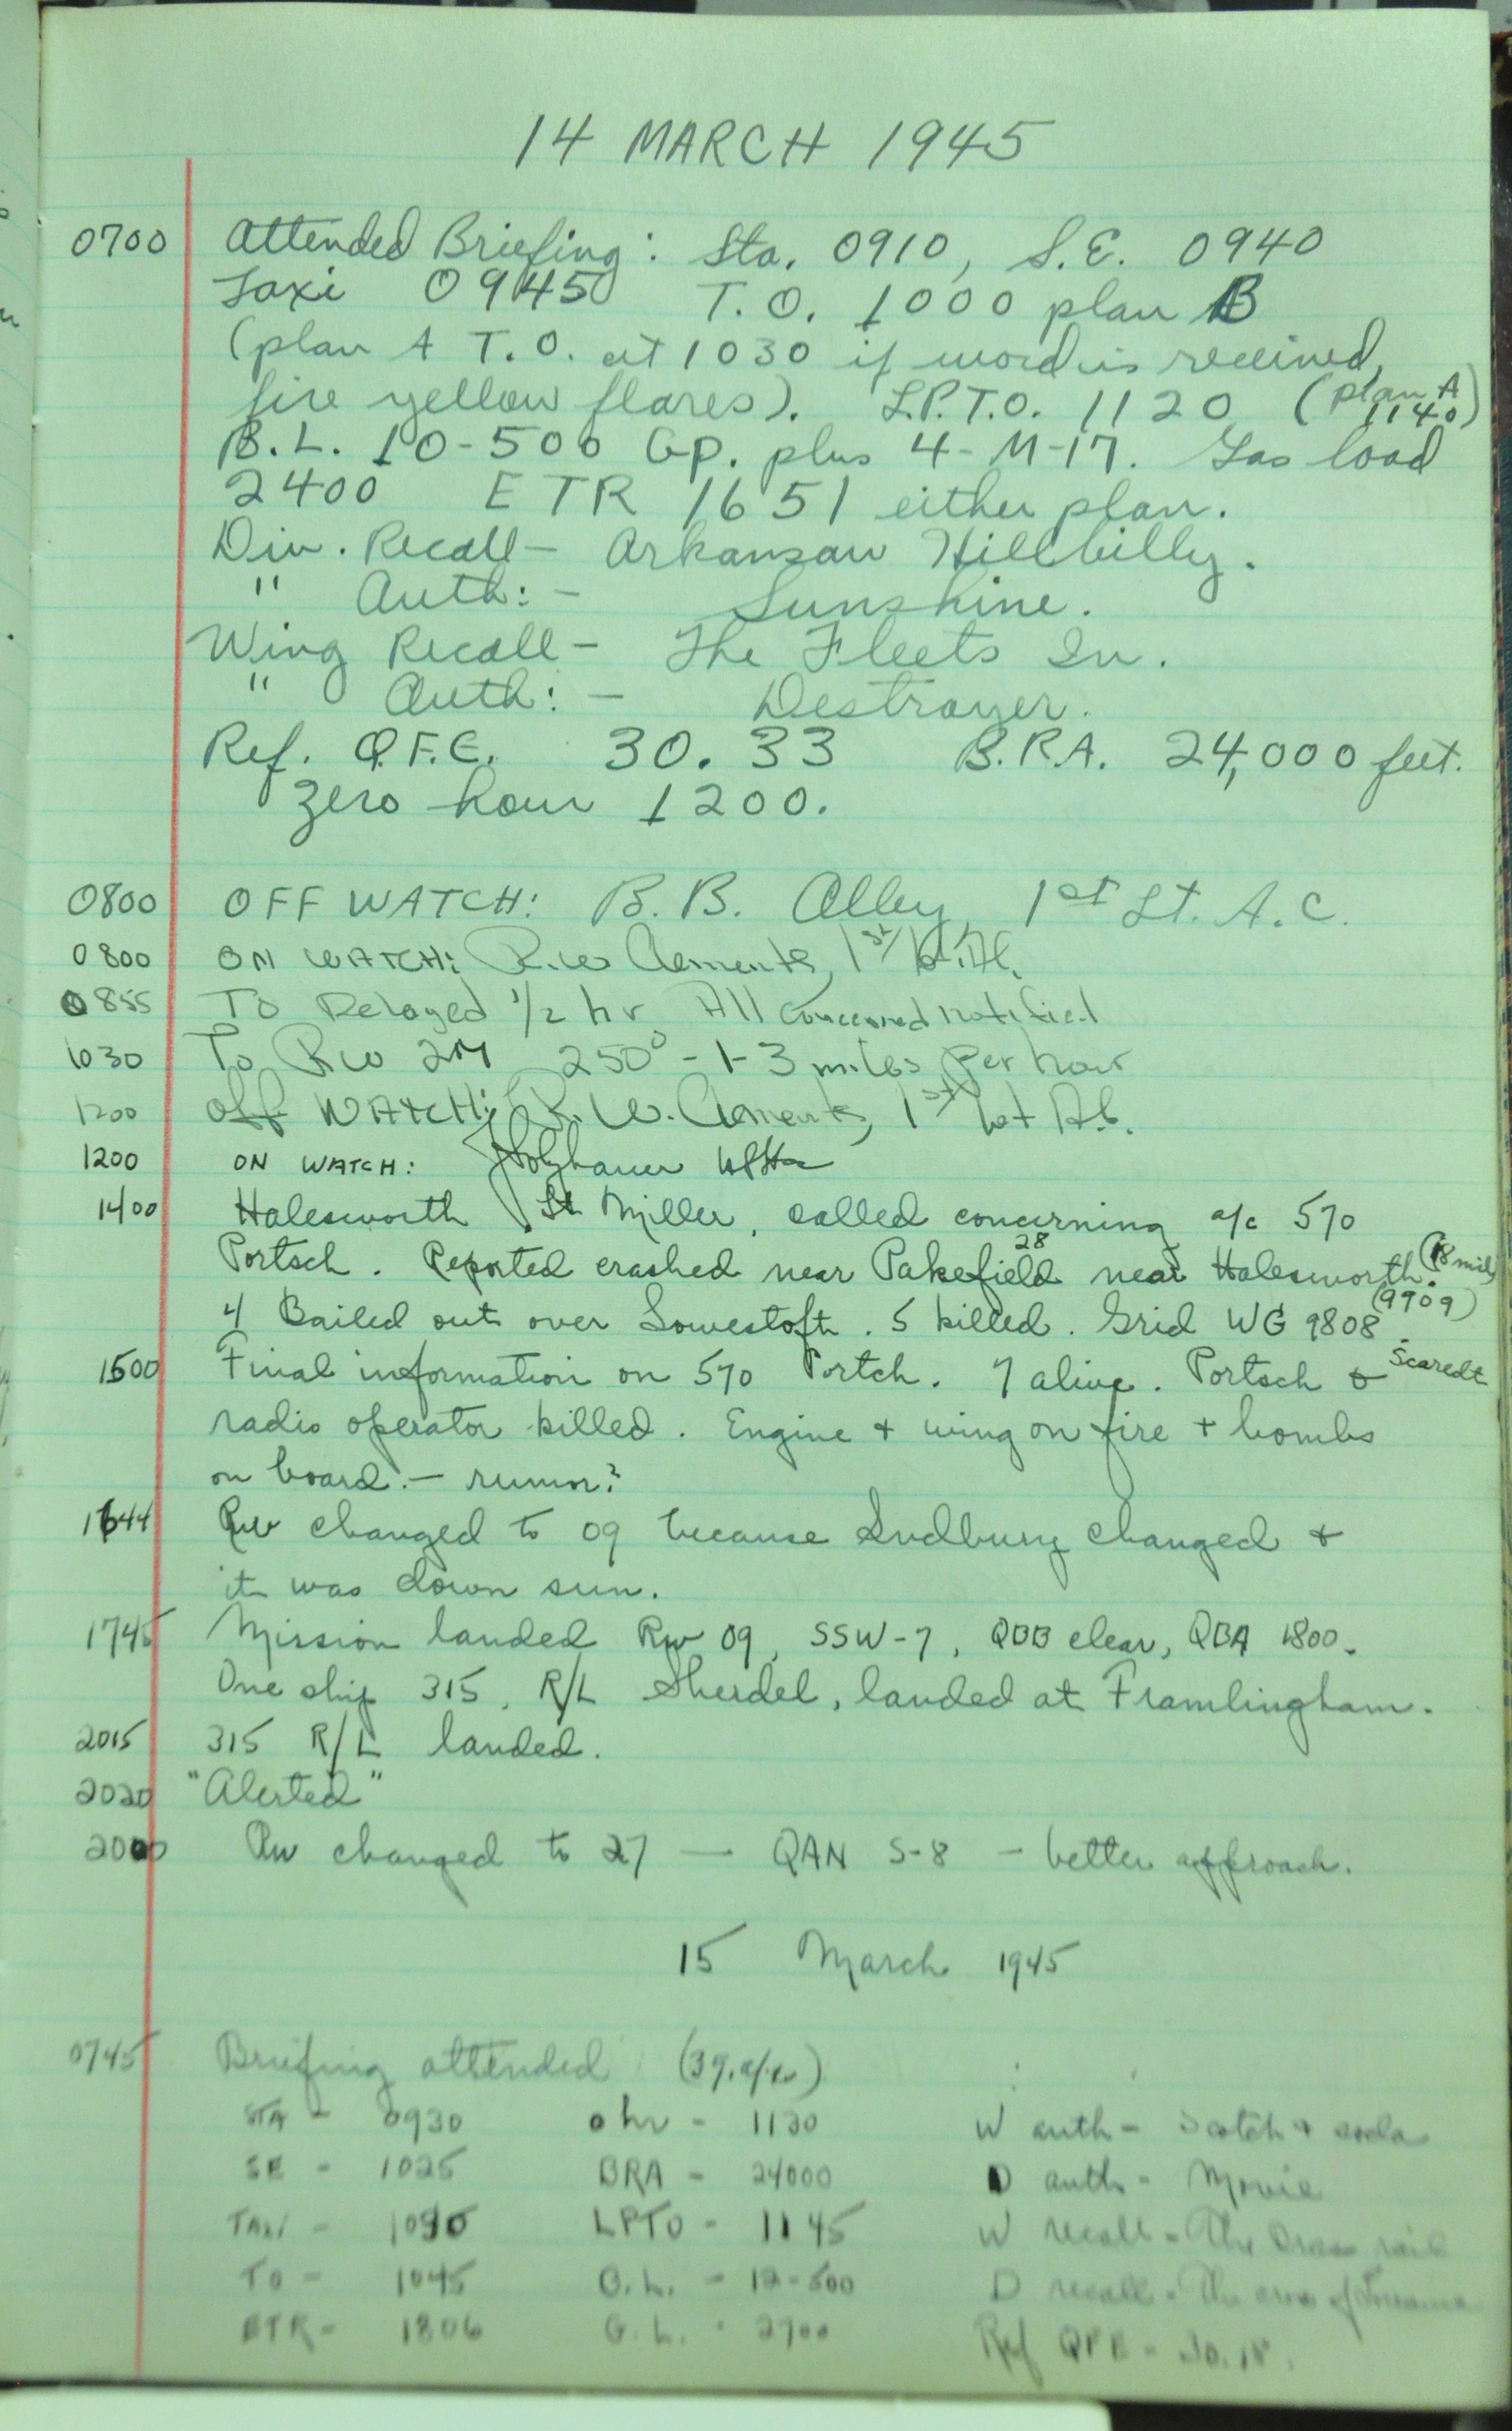 14 MARCH 1945
0700 Attended Briefing: Sta. 0910, S.E. 0940
Taxi 0945 T.O. 1000 plan B
(plan A T.O. at 1030 if word is received,
fire yellow flares). L.P.T.O. 1120 (plan A 1140)
B.L. 10-500 Gp. plus 4-M-17. Gas load
2400 ETR 1651 either plan.
Div. Recall - Arkansaw Hillbilly.
" Auth: - Sunshine.
Wing Recall - The Fleets In.
" Auth: - Destroyer.
Ref. Q.F.E. 30.33 B.R.A. 24,000 feet.
Zero hour 1200.
0800 OFF WATCH: B. B. Alley, 1st Lt. A.C.
0800 ON WATCH: R.W. Clements, 1st Lt. A.C.
0855 TO Delayed 1/2 hr All concerned notified
1030 To RW 27 250° - 1-3 miles per hour
1200 Off WATCH: R. W. Clements, 1st Lt A.C.
1200 ON WATCH:
1400 Halesworth Lt Miller, called concerning a/c 570
Portsch. Reported crashed near Pakefield 28 near Halesworth. (18 mile)
4 Bailed out over Lowestoft. 5 killed. Grid WG 9808. (9909)
1500 Final information on 570 Portch. 7 alive. Portsch &
radio operator killed. Engine + wing on fire + bombs
on board. - rumor?
1644 Rw changed to 09 because Sudbury changed +
it was down sun.
1745 Mission landed Rw 09, SSW-7, QBB clear, QBA 1800.
One ship 315, R/L Sherdel, landed at Framlingham.
2015 315 R/L landed.
2020 "Alerted"
2000 Rw changed to 27 — QAN S-8 - better approach.
15 March 1945
0745 Briefing attended (39 a/c)
STA - 0930 0 hr - 1130 W auth - Scotch & soda
SE - 1025 BRA - 24000 D auth - Movie
TAXI - 1030 LPTO - 1145 W recall - The
TO - 1045 B.L. - 12-500 D recall - The
ETR - 1806 G.L. - 2700 Ref QFE - 30.18.